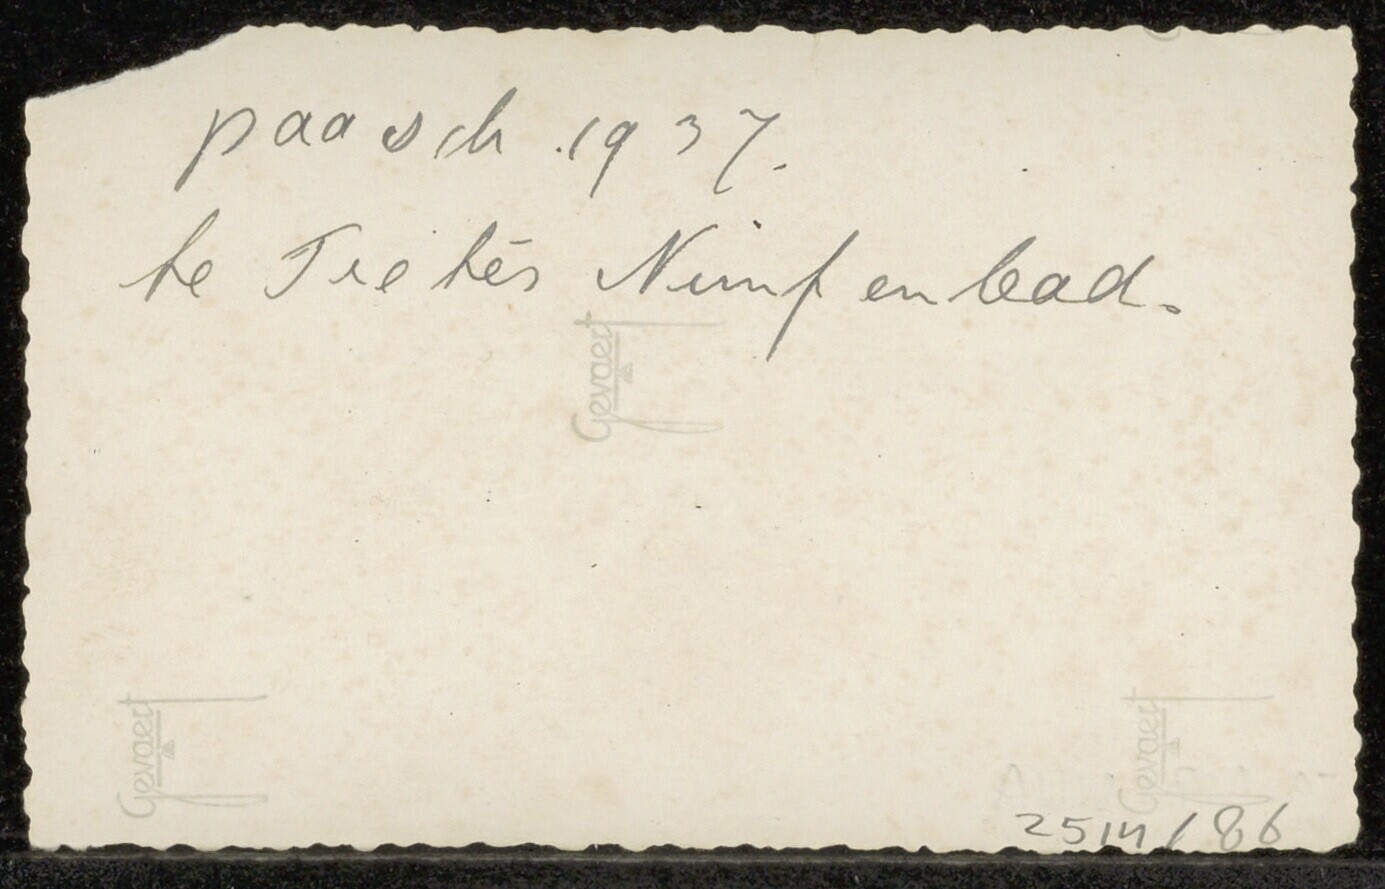 paasch. 1937.
te Tretès Nimfenbad.
Gevaert
Gevaert
Gevaert
2514/86